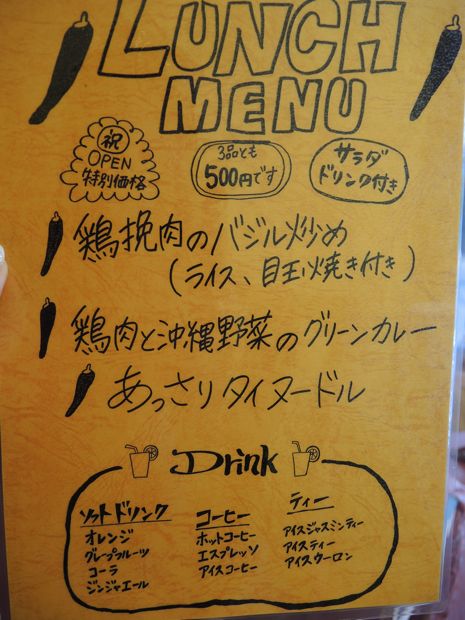 LUNCH
MENU
祝
OPEN
特別価格
3品とも
500円です
サラダ
ドリンク付き
鶏挽肉のバジル炒め
(ライス、目玉焼き付き)
鶏肉と沖縄野菜のグリーンカレー
あっさりタイヌードル
Drink
ソフトドリンク
オレンジ
グレープフルーツ
コーラ
ジンジャエール
コーヒー
ホットコーヒー
エスプレッソ
アイスコーヒー
ティー
アイスジャスミンティー
アイスティー
アイスウーロン